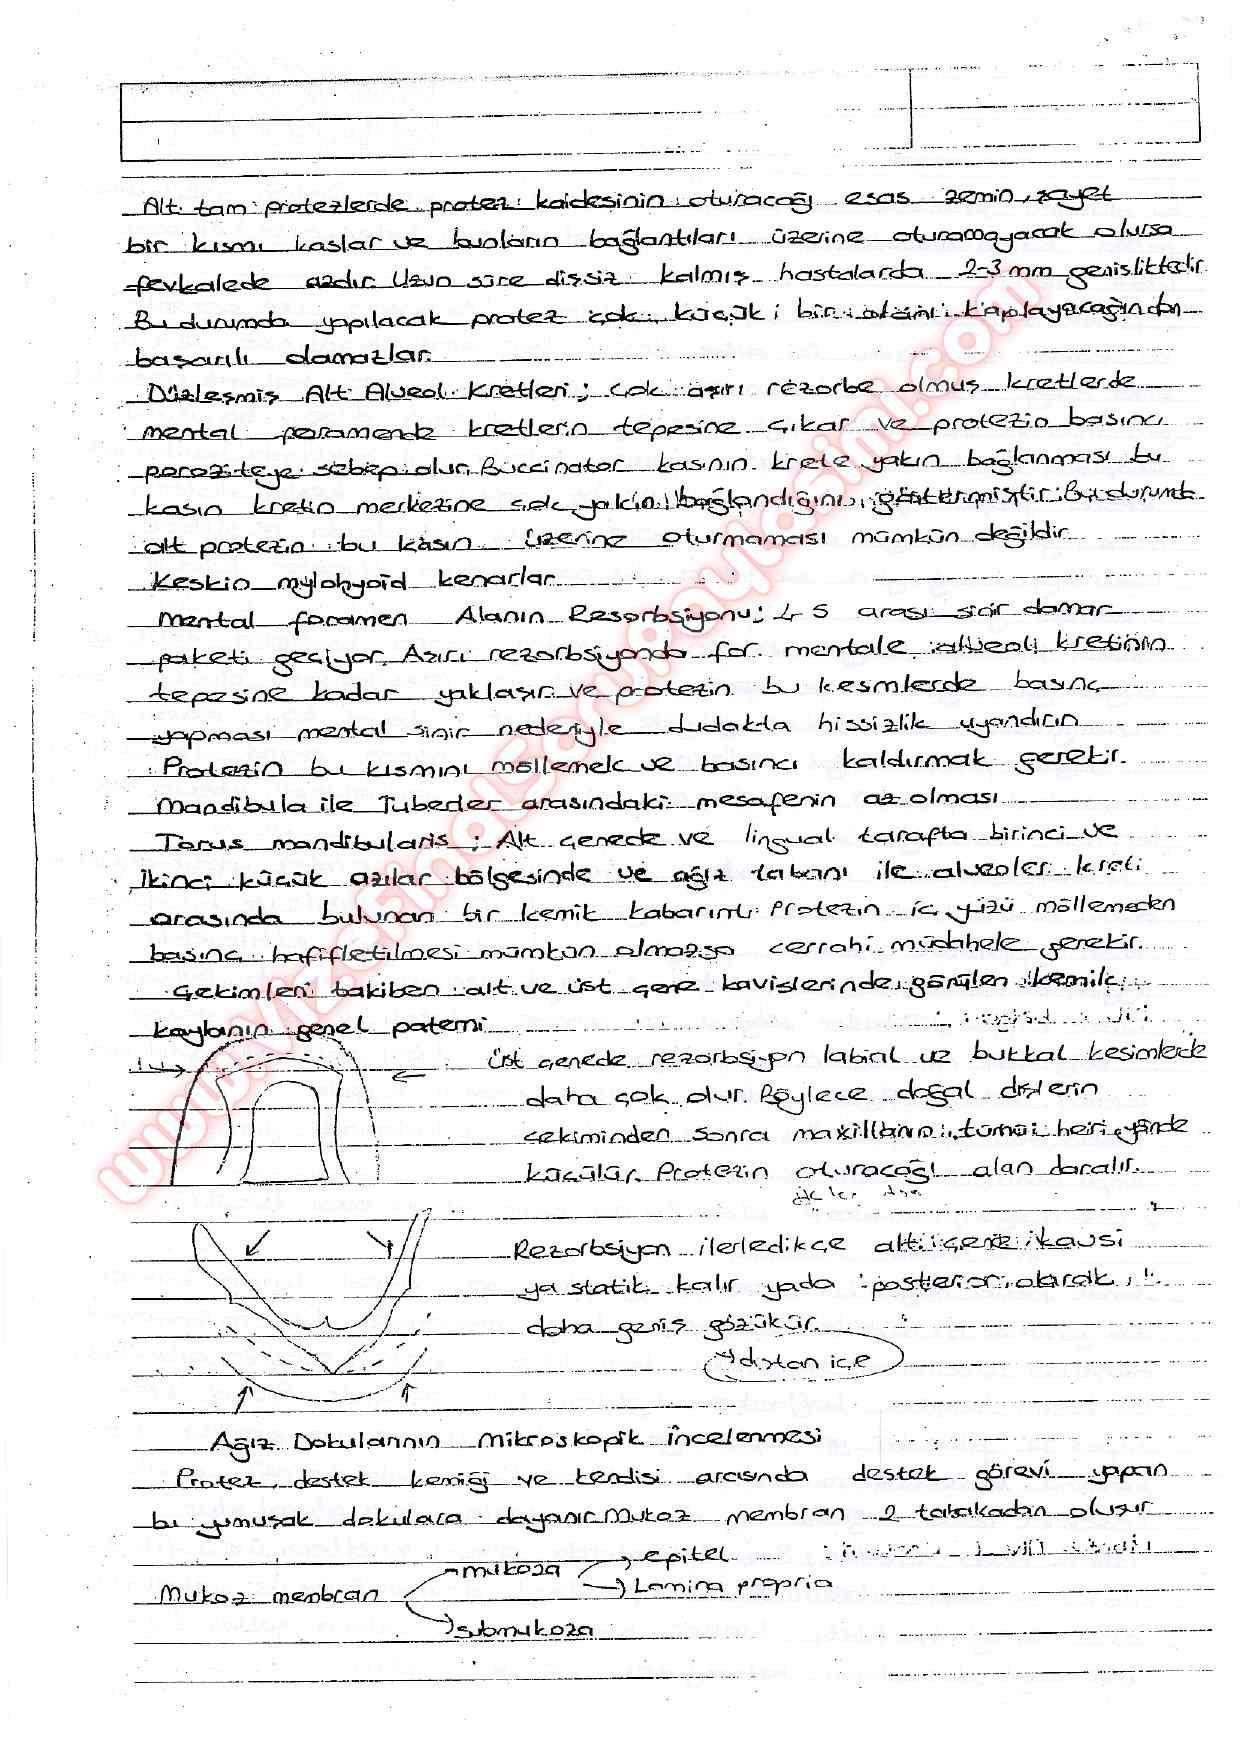 Alt tam protezlerde protez kaidesinin oturacağı esas zemin, şayet
bir kısmı kaslar ve bunların bağlantıları üzerine oturamayacak olursa
fevkalede azdır. Uzun süre dişsiz kalmış hastalarda 2-3 mm genişliktedir.
Bu durumda yapılacak protez çok küçük bir alanı kaplayacağından
başarılı olamazlar.
Düzleşmiş Alt Alveol Kretleri; çok aşırı rezorbe olmuş kretlerde
mental foramende kretlerin tepesine çıkar ve protezin basıncı
paraziteye sebep olur. Buccinator kasının krete yakın bağlanması bu
kasın kretin merkezine çok yakın bağlandığını göstermiştir. Bu durumda
alt protezin bu kasın üzerine oturmaması mümkün değildir.
Keskin mylohyoid kenarlar
Mental foramen Alanın Resorbsiyonu; 4-5 arası sinir damar
paketi geçiyor. Aşırı rezorbsiyonda for. mentale alveol kretinin
tepesine kadar yaklaşır ve protezin bu kesimlerde basınç
yapması mental sinir nedeniyle dudakta hissizlik uyandırır.
Protezin bu kısmını möllemek ve basıncı kaldırmak gerekir.
Mandibula ile Tuberler arasındaki mesafenin az olması
Torus mandibularis; Alt çenede ve lingual tarafta birinci ve
ikinci küçük azılar bölgesinde ve ağız tabanı ile alveoler kreti
arasında bulunan bir kemik kabarıntı. Protezin iç yüzü möllemeden
basınç hafifletilmesi mümkün olmazsa cerrahi müdahele gerekir.
Çekimleri takiben alt ve üst çene kavislerinde görülen kemik
kaybının genel paterni
Üst çenede rezorbsiyon labial ve bukkal kesimlerde
daha çok olur. Böylece doğal dişlerin
çekiminden sonra maksillanın tümü her yönde
küçülür. Protezin oturacağı alan daralır.
Rezorbsiyon ilerledikçe alt çene kavsi
ya statik kalır yada posterior olarak
daha geniş gözükür.
→ dıştan içe
Ağız Dokularının Mikroskopik İncelenmesi
Protez, destek kemiği ve kendisi arasında destek görevi yapan
bu yumuşak dokulara dayanır. Mukoz membran 2 tabakadan oluşur
Mukoz membran → mukoza → epitel
→ Lamina propria
→ submukoza
www.VizeFinalSoruPaylasimi.com